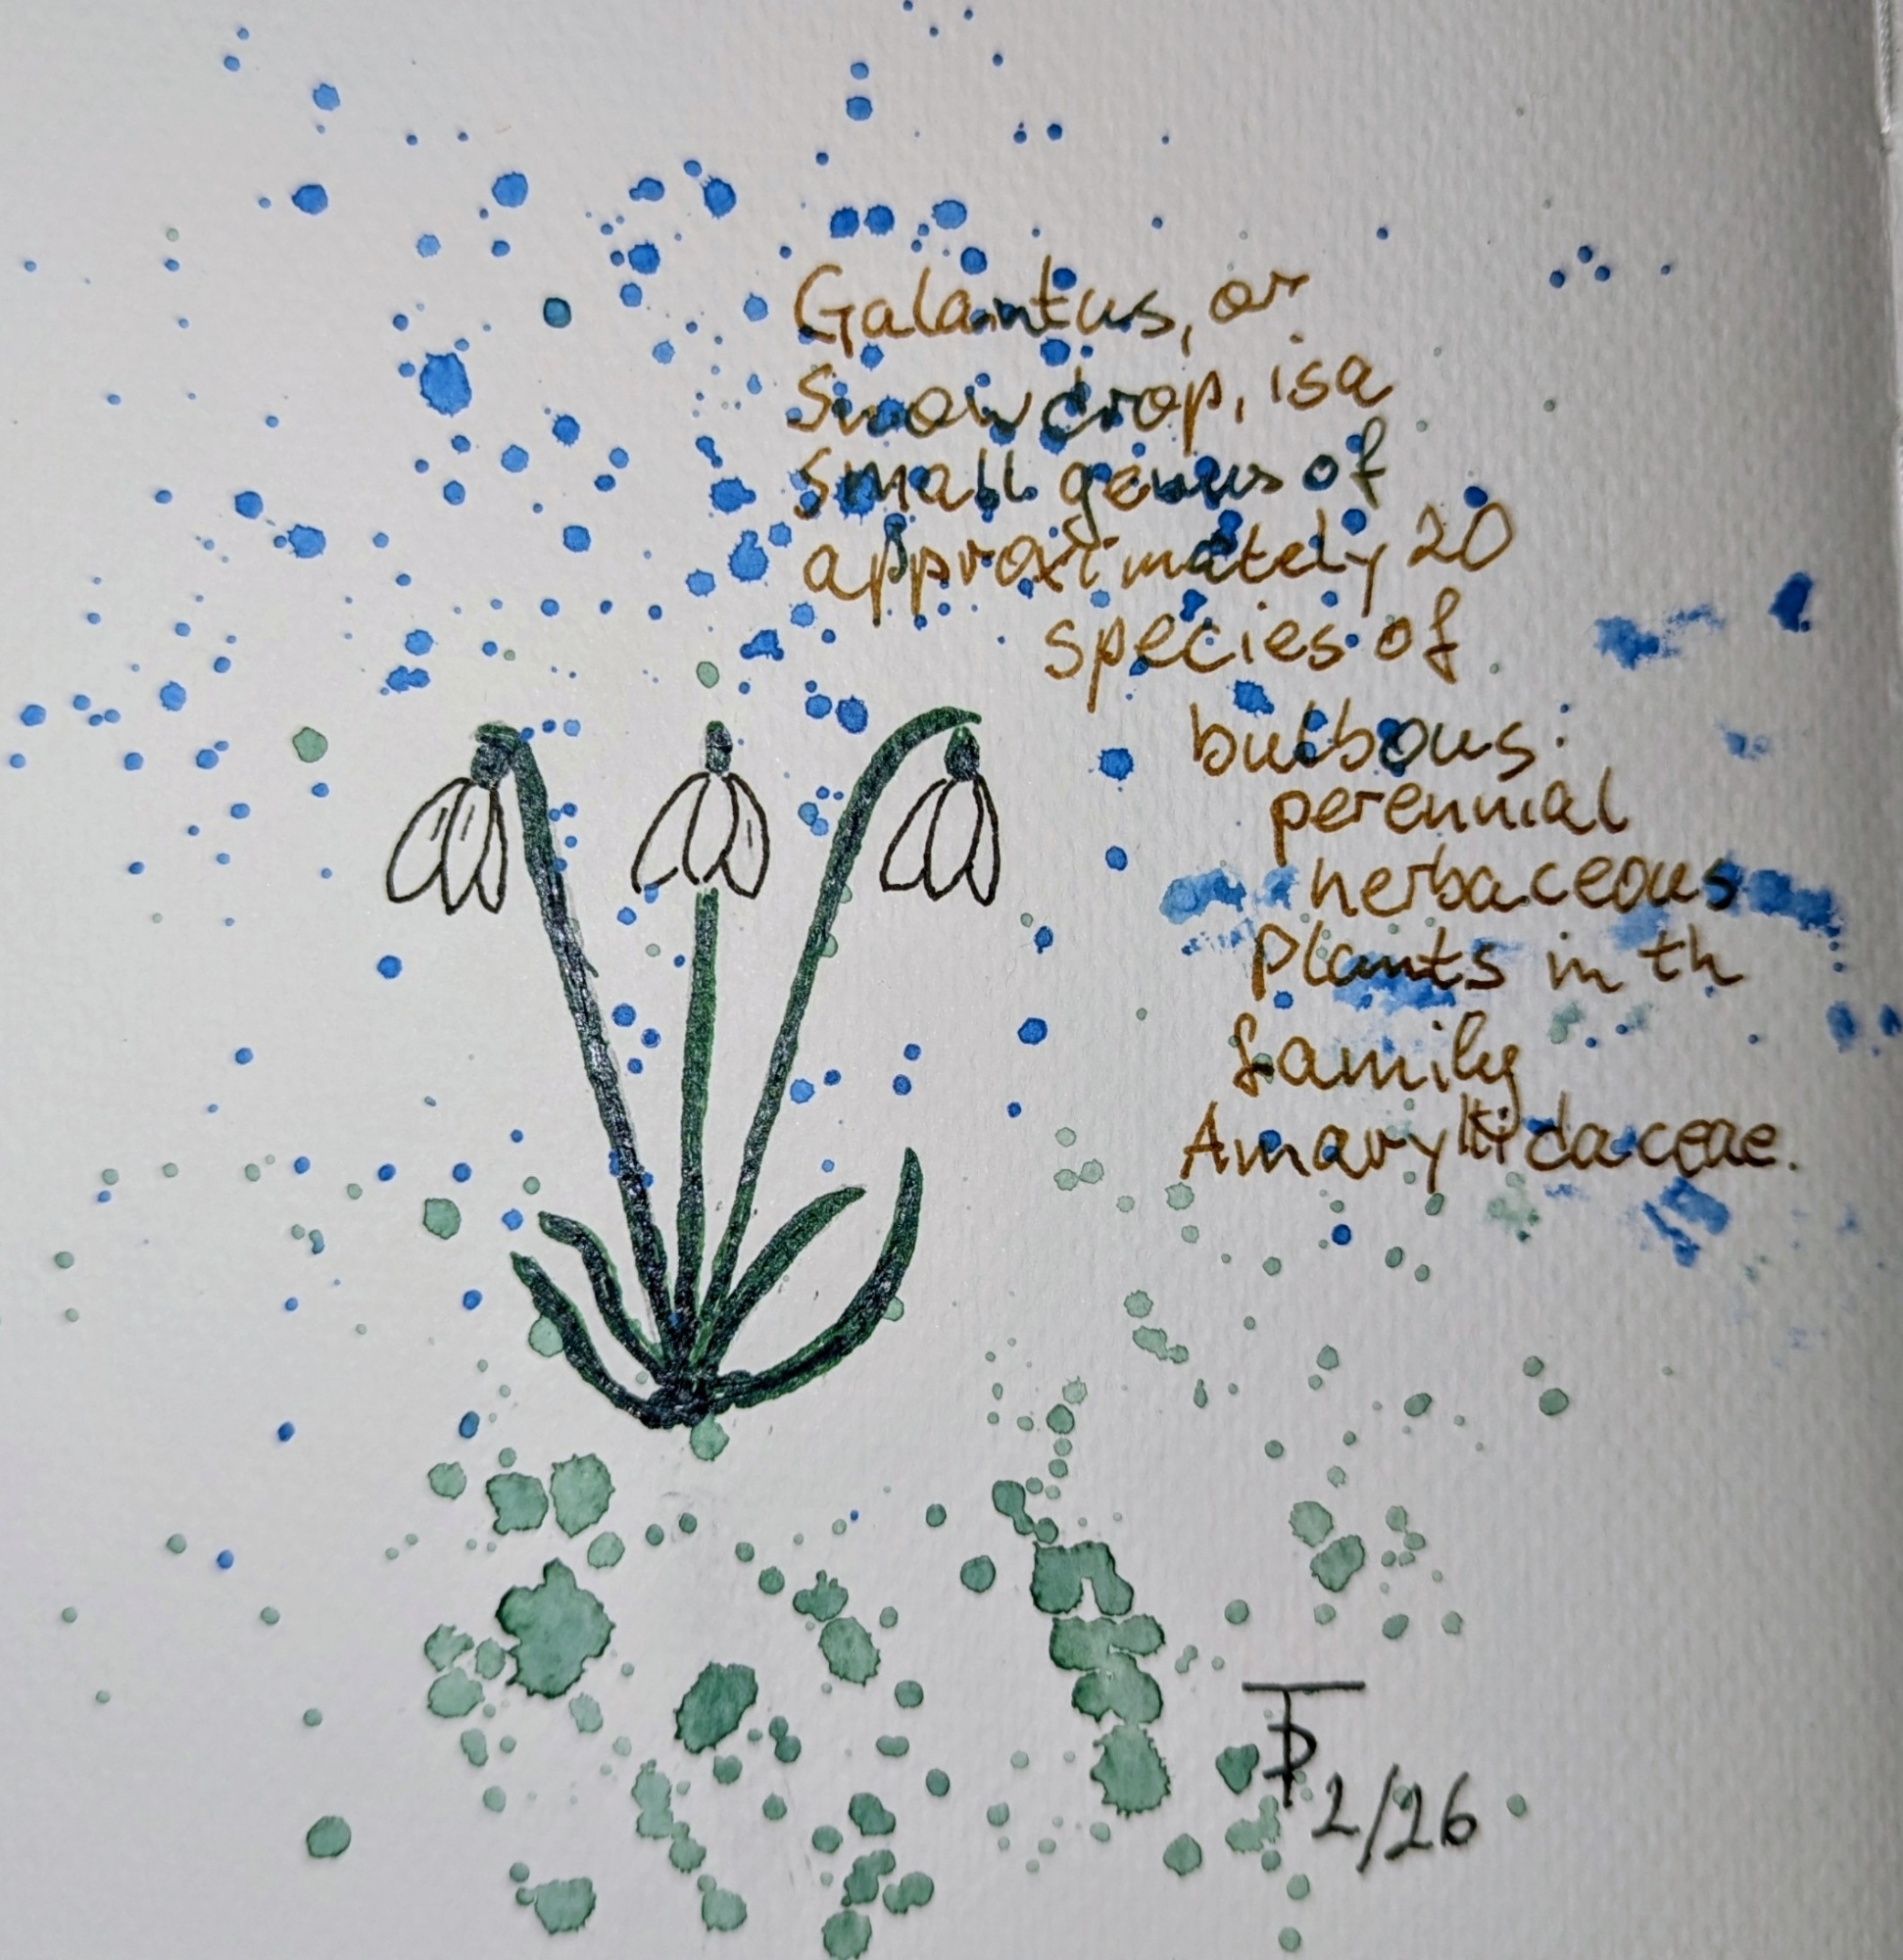 Galantus, or
Snowdrop, is a
small genus of
approximately 20
species of
bulbous:
perennial
herbaceous
Plants in th
family
Amaryllidaceae.
2/26